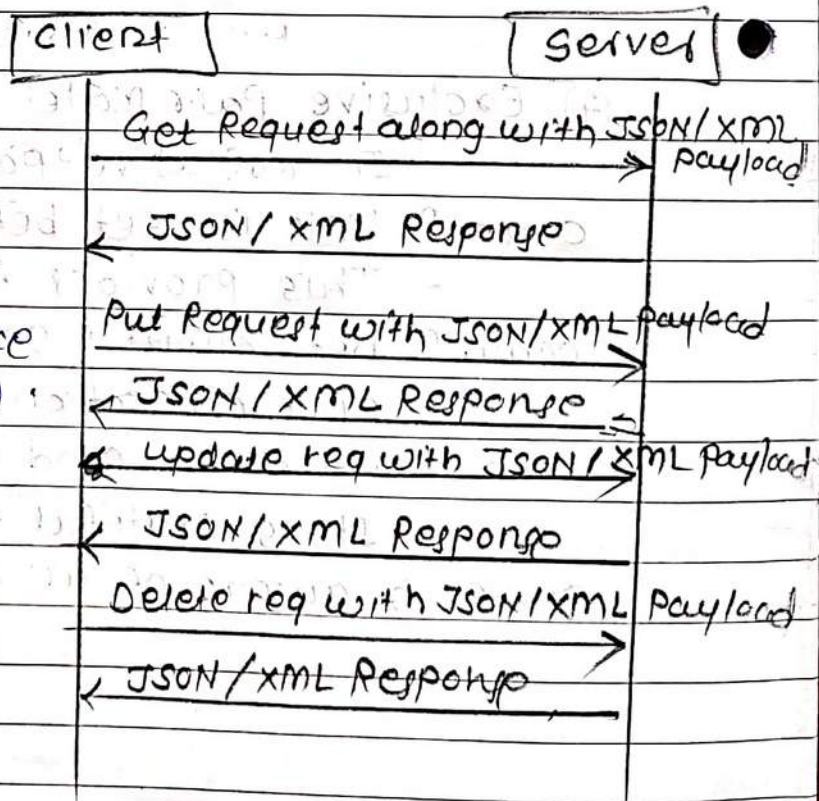 Client Server
Get Request along with JSON/XML
payload
JSON/ XML Response
Put Request with JSON/XML payload
ce
JSON/XML Response
update req with JSON/XML payload
JSON/XML Response
Delete req with JSON/XML payload
JSON/XML Response